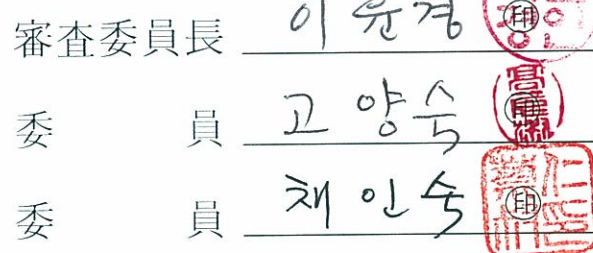 審査委員長 이윤경 ㊞
委 員 고양숙 ㊞
委 員 채인숙 ㊞